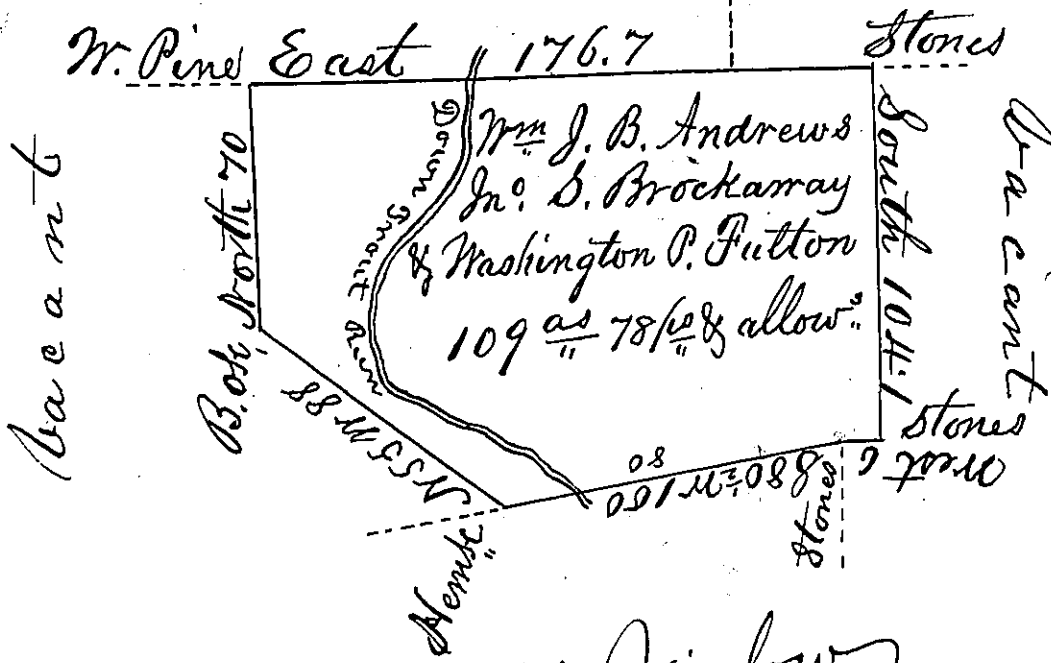 W. Pine East 176.7 Stones
Vacant
B. ok North 70
Down Trout Run
Wm J. B. Andrews
Jno. S. Brockaway
& Washington P. Fulton
109 as 78 ps & allow"
South 104.1
Vacant
Stones
West 6
Stones
S 80½ W 100
80
N 55 W 88
Hemk"